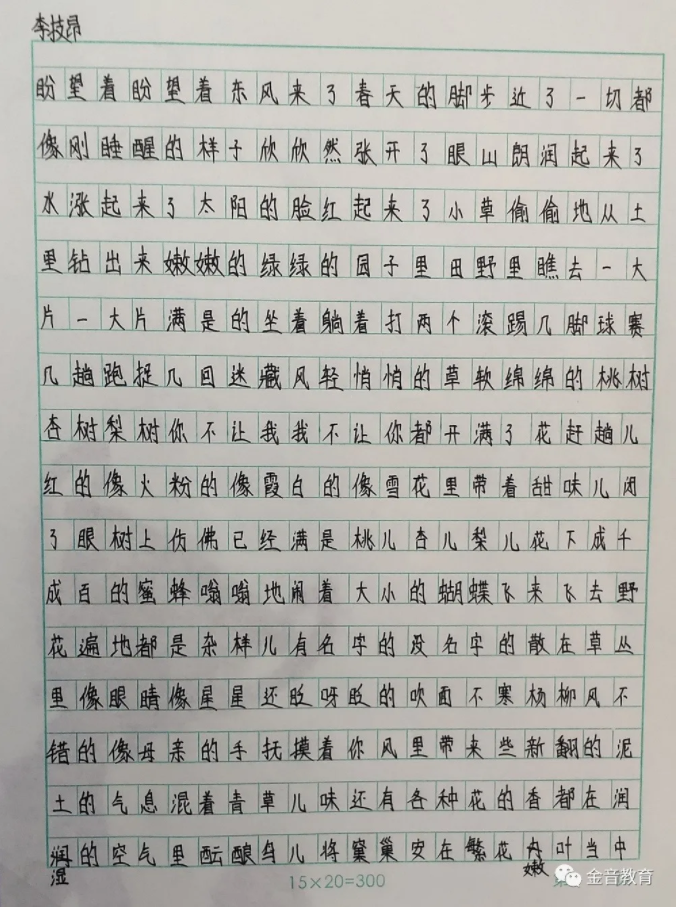 李技昂
盼望着盼望着东风来了春天的脚步近了一切都
像刚睡醒的样子欣欣然张开了眼山朗润起来了
水涨起来了太阳的脸红起来了小草偷偷地从土
里钻出来嫩嫩的绿绿的园子里田野里瞧去一大
片一大片满是的坐着躺着打两个滚踢几脚球赛
几趟跑捉几回迷藏风轻悄悄的草软绵绵的桃树
杏树梨树你不让我我不让你都开满了花赶趟儿
红的像火粉的像霞白的像雪花里带着甜味儿闭
了眼树上仿佛已经满是桃儿杏儿梨儿花下成千
成百的蜜蜂嗡嗡地闹着大小的蝴蝶飞来飞去野
花遍地都是杂样儿有名字的没名字的散在草丛
里像眼睛像星星还眨呀眨的吹面不寒杨柳风不
错的像母亲的手抚摸着你风里带来些新翻的泥
土的气息混着青草儿味还有各种花的香都在润
润的空气里酝酿鸟儿将窠巢安在繁花叶当中
湿
嫩
15×20=300
金音教育